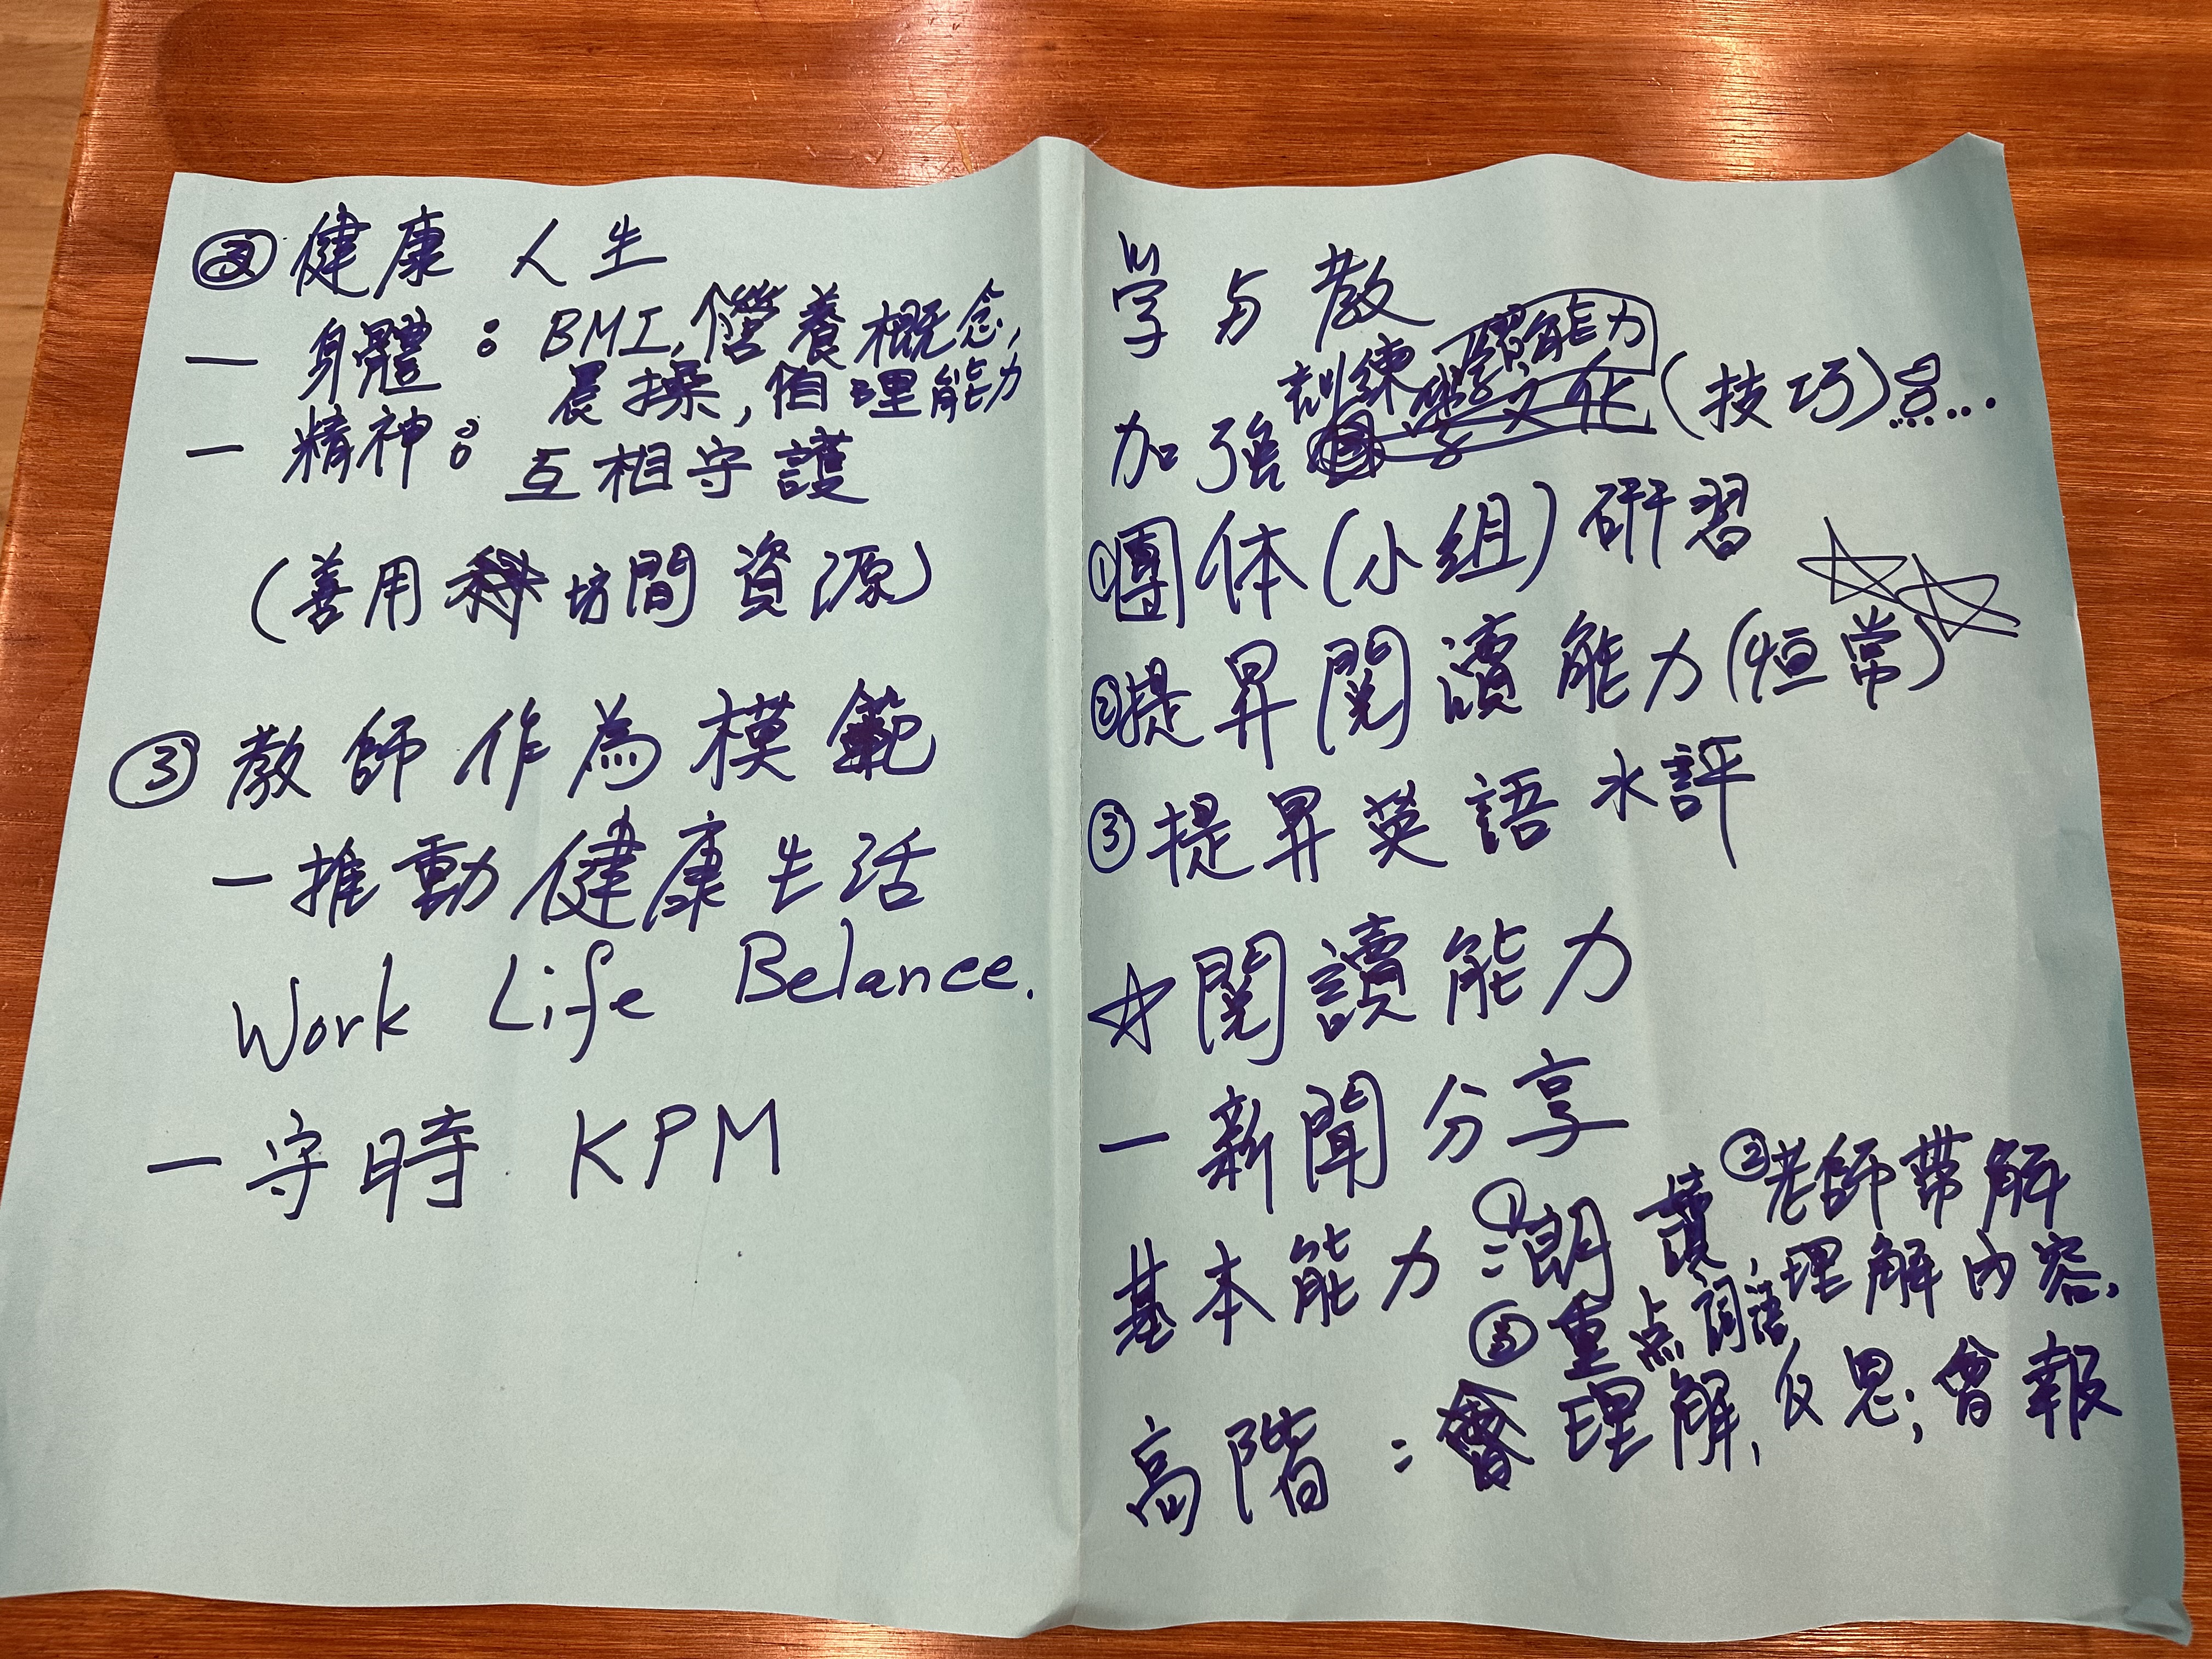 ② 健康人生
— 身體：BMI, 營養概念,
晨操, 自理能力
— 精神：互相守護
(善用坊間資源)
③ 教師作為模範
— 推動健康生活
Work Life Belance.
— 守時 KPM
学与教
訓練 學習能力
加強 (技巧)：......
①團体(小组)研習
②提昇閱讀能力(恒常)
③提昇英語水評
☆閱讀能力
— 新聞分享
基本能力：①朗讀, ②老師带解
理解内容,
③重点詞語
高階：理解, 反思; 會報